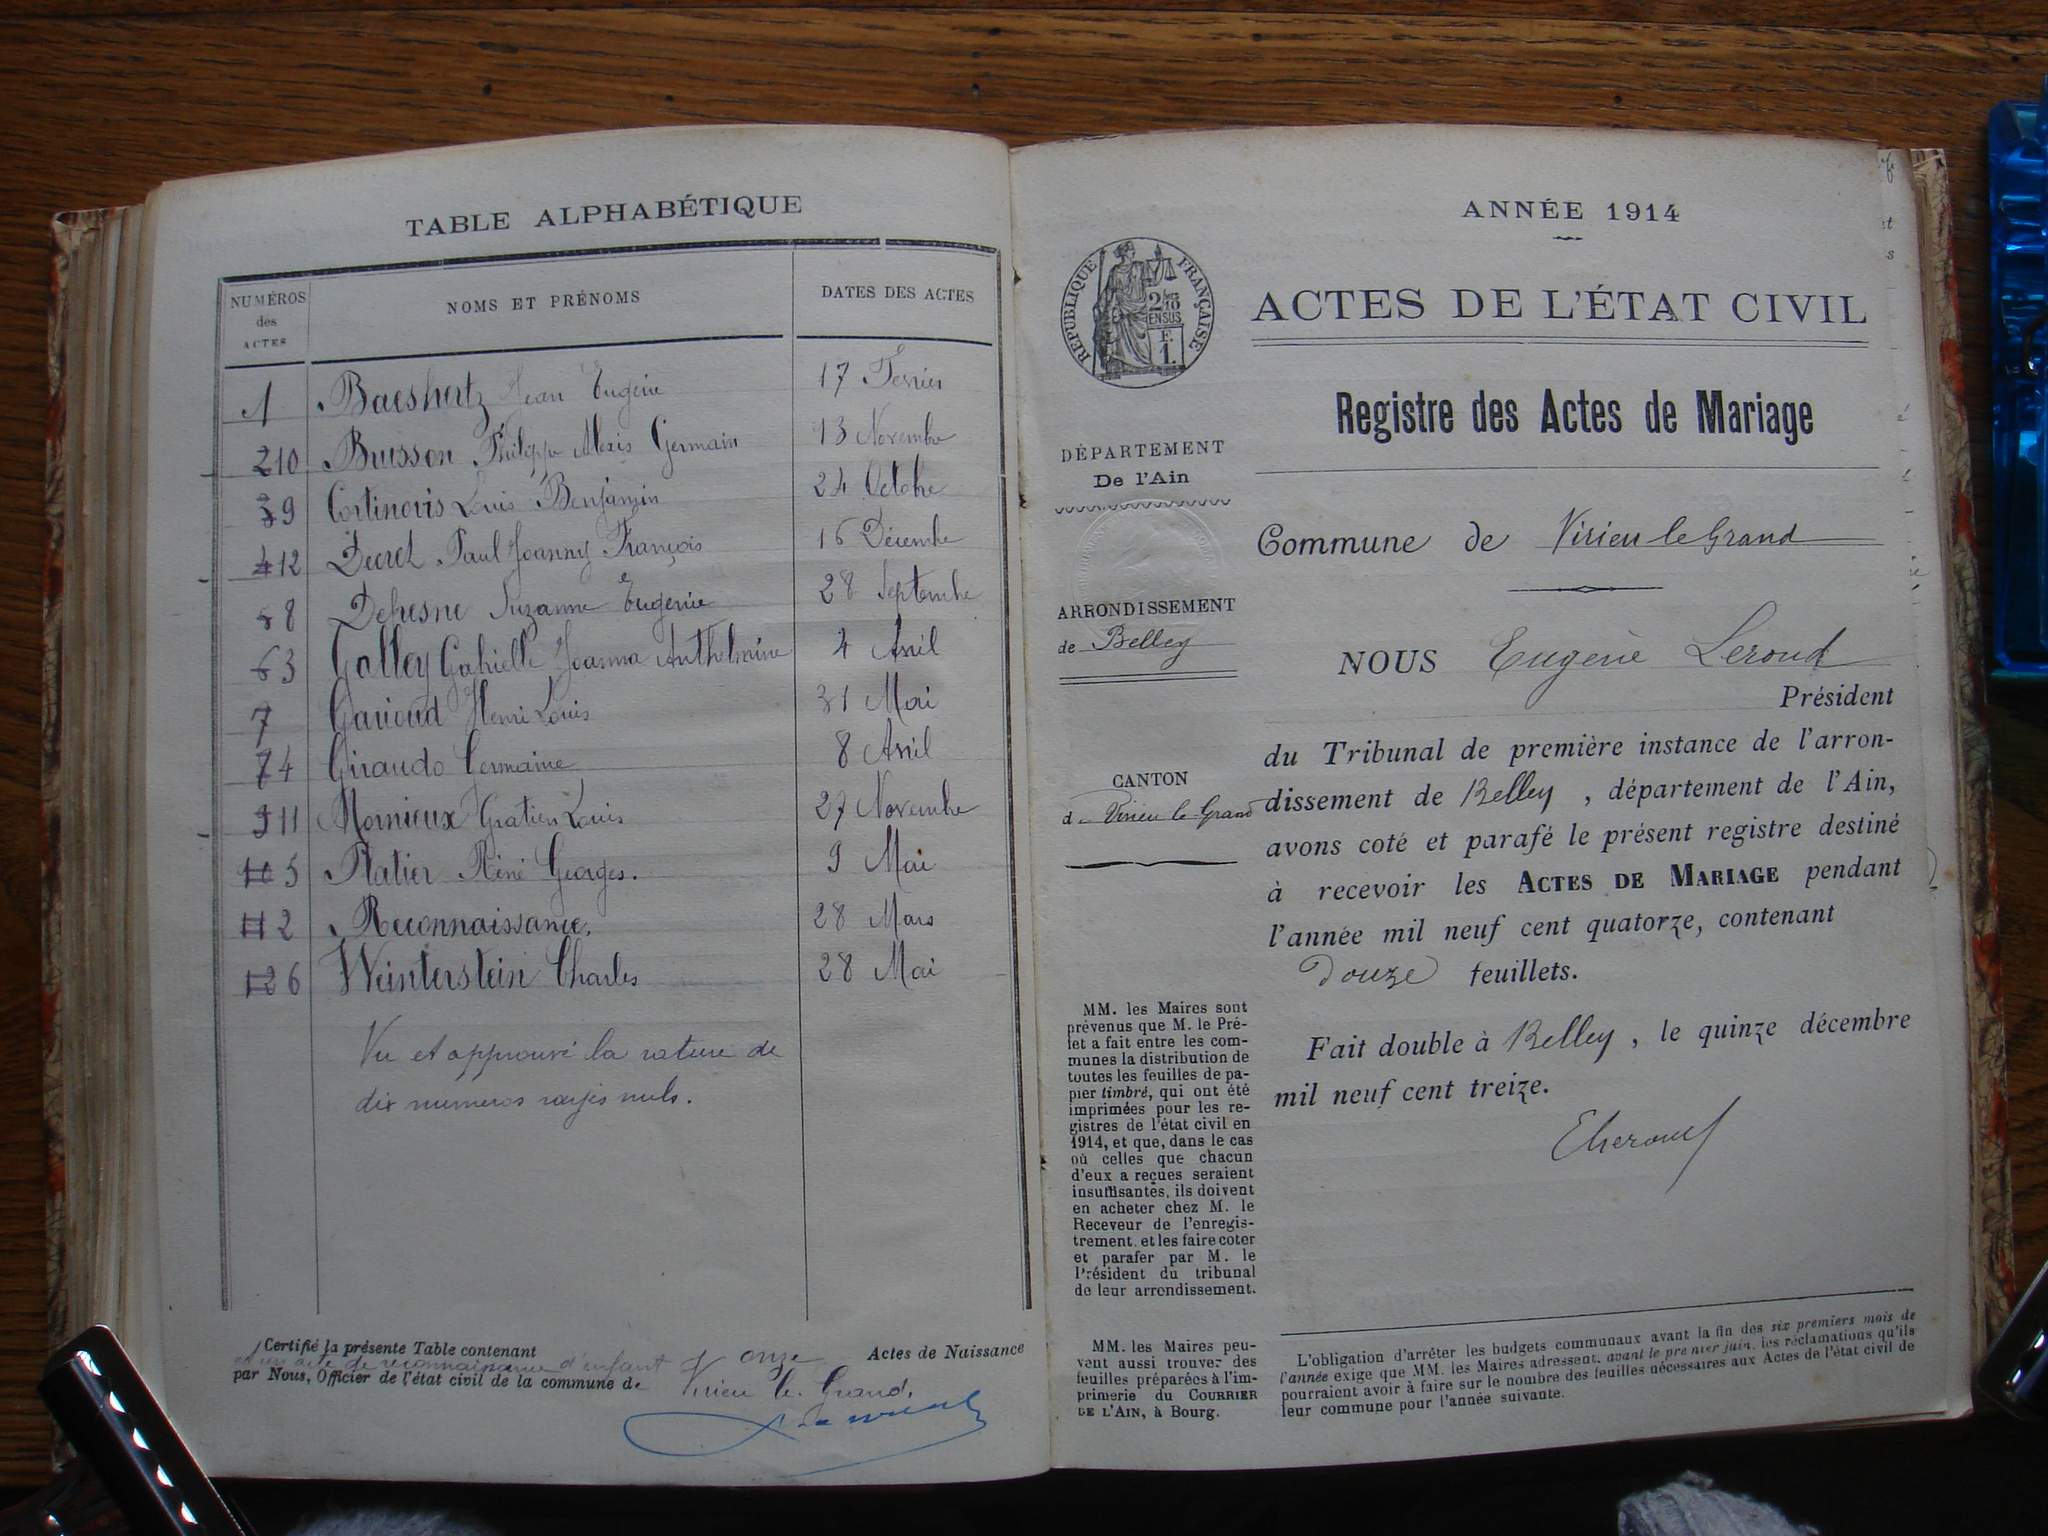 TABLE ALPHABÉTIQUE
NUMÉROS des ACTES NOMS ET PRÉNOMS DATES DES ACTES
1 Baeshertz Jean Eugène 17 Fevrier
210 Buisson Philippe Alexis Germain 13 Novembre
39 Cortinovis Louis Benjamin 24 Octobre
412 Decret Paul Joanny François 16 Décembre
8 Defresne Suzanne Eugénie 28 Septembre
63 Golley Gabrielle Joanna Anthelmine 4 Avril
7 Garioud Henri Louis 31 Mai
74 Giraudo Germaine 8 Avril
911 Mornieux Gratien Louis 27 Novembre
10 5 Platier Réné Georges. 9 Mai
11 2 Reconnaissance. 28 Mars
12 6 Weinterstein Charles 28 Mai
Vu et approuvé la rature de
dix numéros rayés nuls.
Certifié la présente Table contenant onze Actes de Naissance
et un acte de reconnaissance d'enfant
par Nous, Officier de l'état civil de la commune de Virieu le Grand.
ANNÉE 1914
RÉPUBLIQUE FRANÇAISE
2/10 EN SUS
F.
1.
ACTES DE L'ÉTAT CIVIL
Registre des Actes de Mariage
DÉPARTEMENT
De l'Ain
Commune de Virieu le Grand
ARRONDISSEMENT
de Belley
NOUS Eugène Leroud
Président
du Tribunal de première instance de l'arron-
CANTON
d Virieu le Grand
dissement de Belley, département de l'Ain,
avons coté et parafé le présent registre destiné
à recevoir les ACTES DE MARIAGE pendant
l'année mil neuf cent quatorze, contenant
Douze feuillets.
Fait double à Belley, le quinze décembre
mil neuf cent treize.
MM. les Maires sont
prévenus que M. le Pré-
fet a fait entre les com-
munes la distribution de
toutes les feuilles de pa-
pier timbré, qui ont été
imprimées pour les re-
gistres de l'état civil en
1914, et que, dans le cas
où celles que chacun
d'eux a reçues seraient
insuffisantes, ils doivent
en acheter chez M. le
Receveur de l'enregis-
trement, et les faire coter
et parafer par M. le
Président du tribunal
de leur arrondissement.
MM. les Maires peu-
vent aussi trouver des
feuilles préparées à l'im-
primerie du COURRIER
DE L'AIN, à Bourg.
L'obligation d'arrêter les budgets communaux avant la fin des six premiers mois de
l'année exige que MM. les Maires adressent, avant le premier juin, les réclamations qu'ils
pourraient avoir à faire sur le nombre des feuilles nécessaires aux Actes de l'état civil de
leur commune pour l'année suivante.